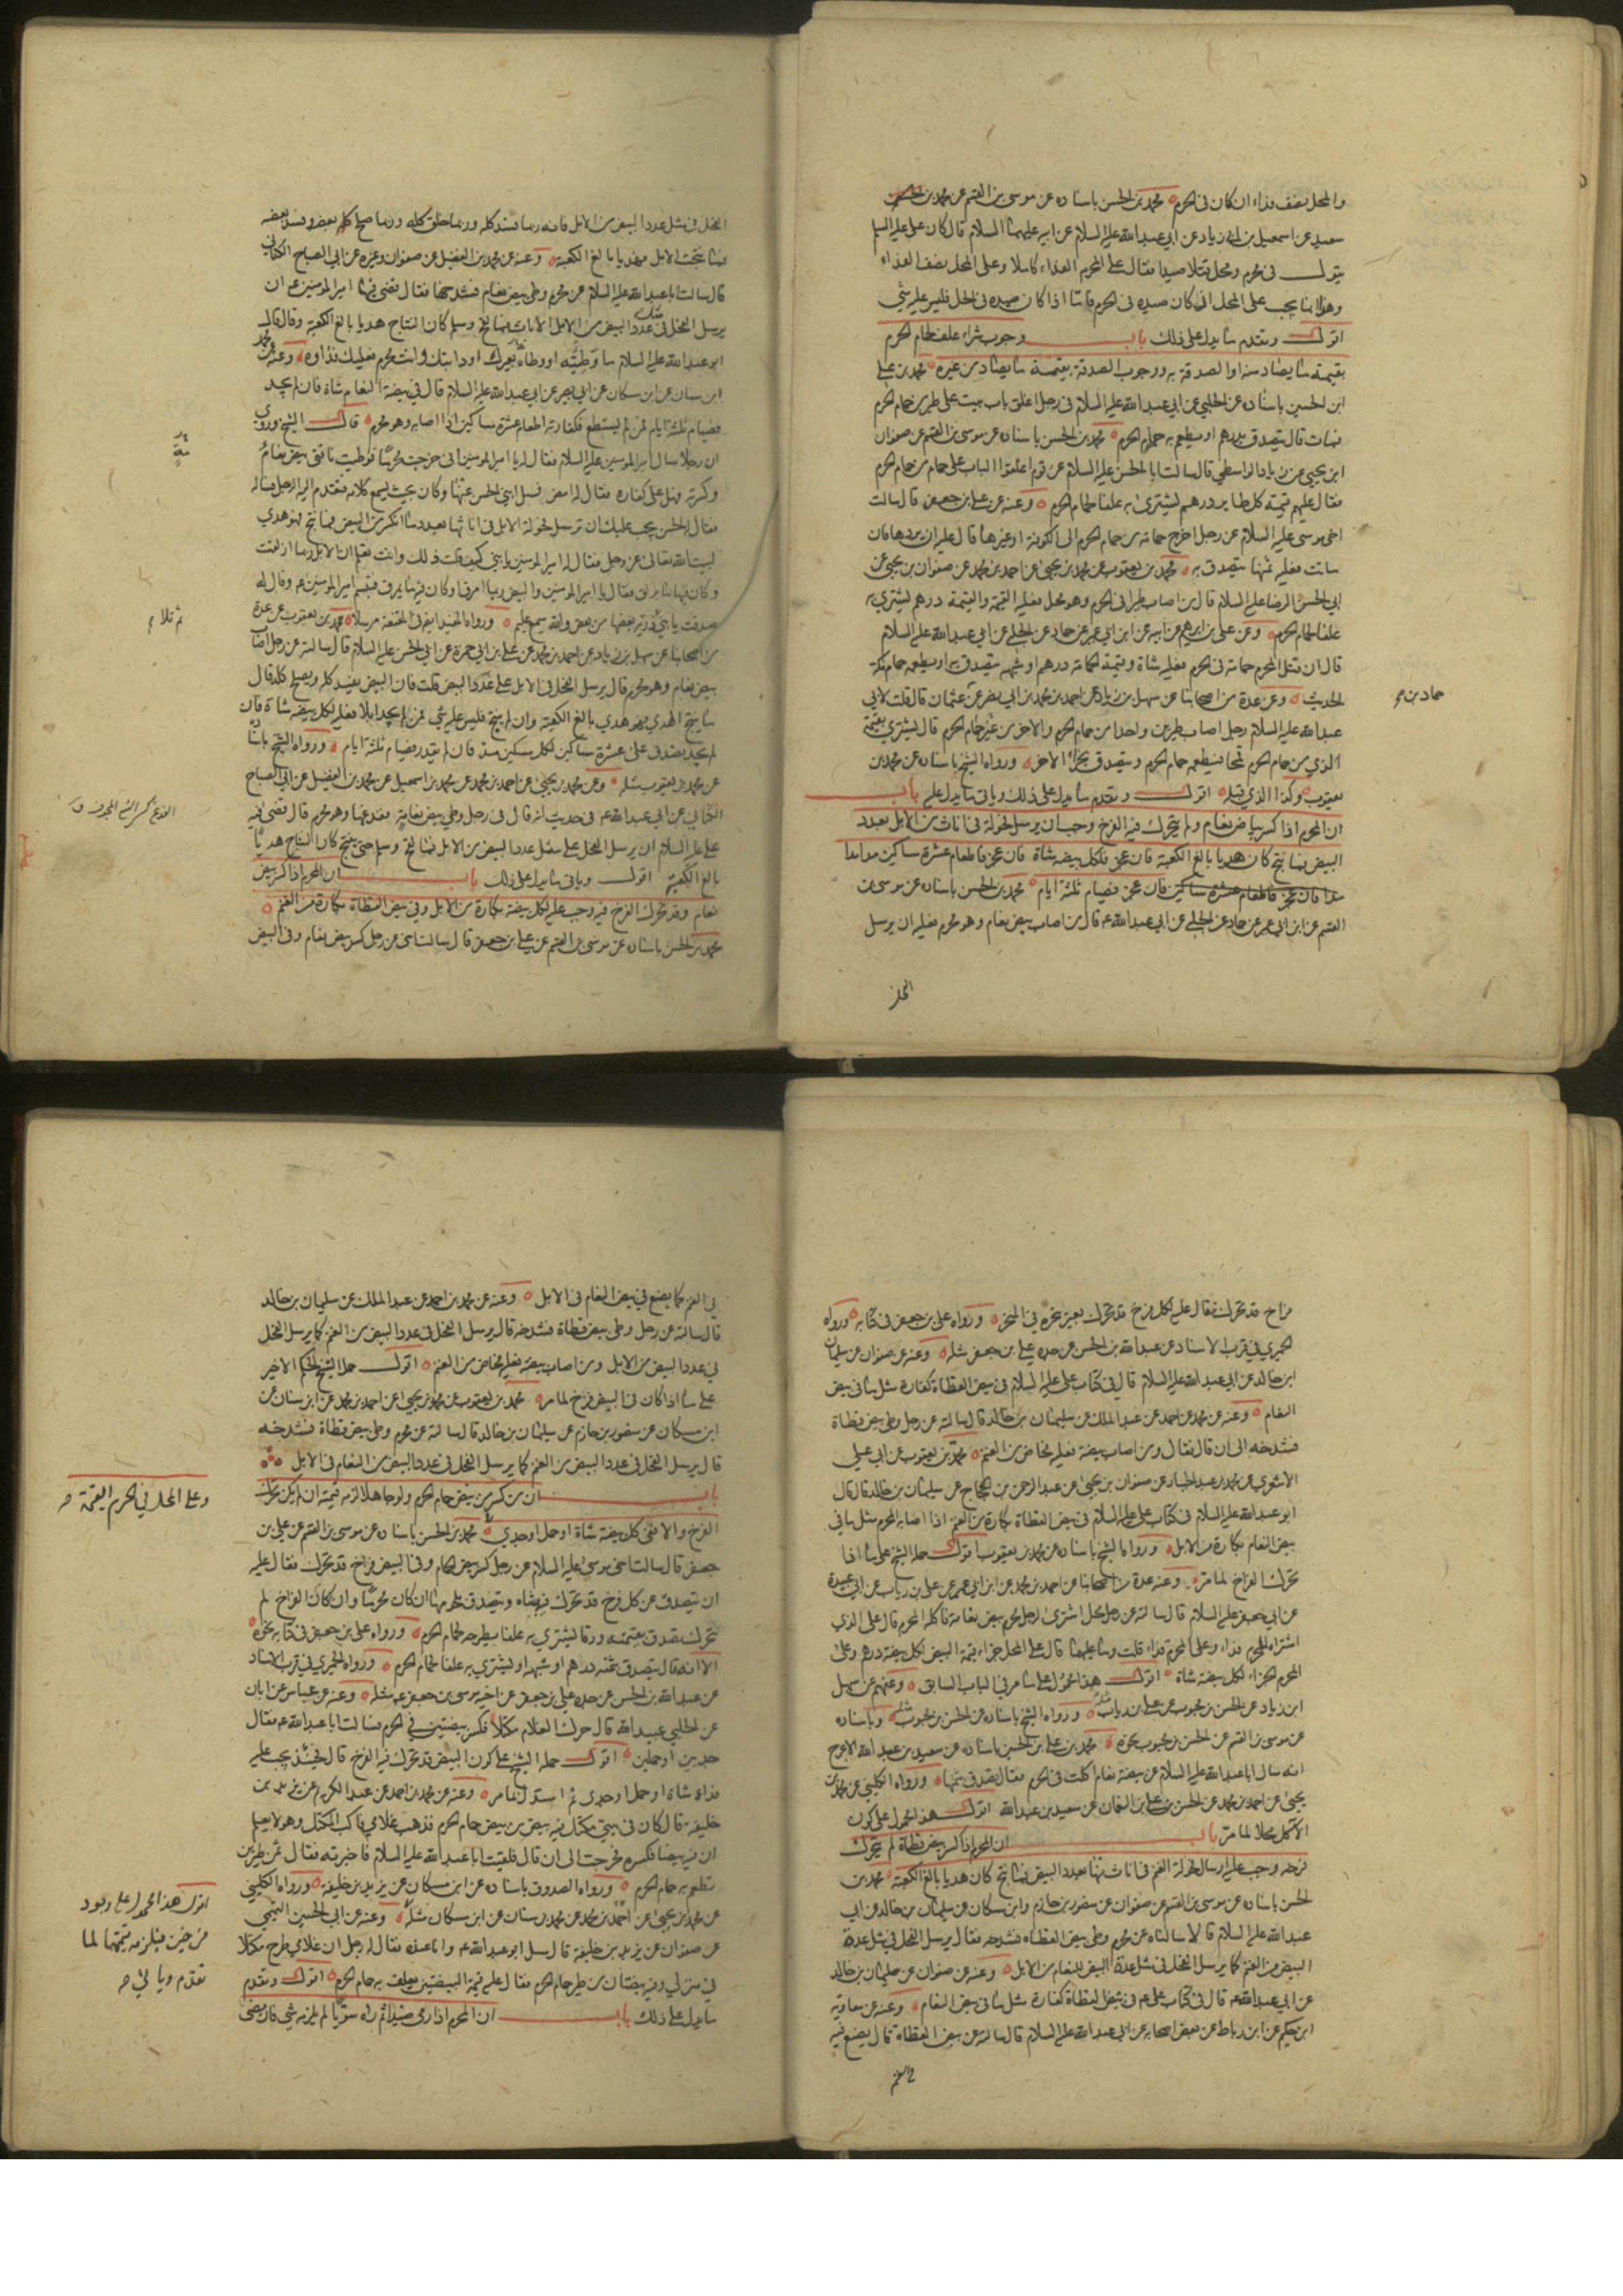 والمحل نصف فداء ان كان في الحرم محمد بن الحسن باسناده عن موسى بن القسم عن محمد بن الحسن
سعيد عن اسمعيل بن ابي زياد عن ابي عبدالله عليه السلام عن ابيه عليهما السلام قال كان علي عليه السلام
يقول في محرم ومحل قتلا صيدا فقال على المحرم الفداء كاملا وعلى المحل نصف الفداء
وهذا انما يجب على المحل اذا كان صيده في الحرم فاما اذا كان صيده في الحل فليس عليه شي
اقول وتقدم ما يدل على ذلك باب وجوب شراء علف لحمام الحرم
بقيمة ما يصاد منه او الصدقة به ووجوب الصدقة بقيمة ما يصاد من غيره محمد بن علي
ابن الحسين باسناده عن الحلبي عن ابي عبدالله عليه السلام في رجل اغلق باب بيت على طير من حمام الحرم
فمات قال يتصدق بدرهم او يطعم به حمام الحرم محمد بن الحسن باسناده عن موسى بن القسم عن صفوان
ابن يحيى عن زياد الواسطي قال سالت ابا الحسن عليه السلام عن قوم اغلقوا الباب على حمام من حمام الحرم
فقال عليهم قيمة كل طاير درهم يشترى به علفا لحمام الحرم وعنه عن علي بن جعفر قال سالت
اخي موسى عليه السلام عن رجل اخرج حمامة من حمام الحرم الى الكوفة او غيرها قال عليه ان يردها فان
ماتت فعليه ثمنها يتصدق به محمد بن يعقوب عن محمد بن يحيى عن احمد بن محمد عن صفوان بن يحيى عن
ابي الحسن الرضا عليه السلام قال من اصاب طيرا في الحرم وهو محل فعليه القيمة والقيمة درهم يشتري به
علفا لحمام الحرم وعن علي بن ابرهيم عن ابيه عن ابن ابي عمير عن حماد عن الحلبي عن ابي عبدالله عليه السلام
قال ان قتل المحرم حمامة في الحرم فعليه شاة وقيمة الحمامة درهم او شبهه يتصدق به او يطعمه حمام مكة
الحديث وعن عدة من اصحابنا عن سهل بن زياد عن احمد بن محمد بن ابي نصر عن عثمان قال قلت لابي
حماد بن
عبدالله عليه السلام رجل اصاب طيرين واحدا من حمام الحرم والاخر من غير حمام الحرم قال يشتري بقيمة
الذي من حمام الحرم قمحا فيطعمه حمام الحرم ويتصدق بجزاء الاخر ورواه الشيخ باسناده عن محمد بن
يعقوب وكذا الذي قبله اقول وتقدم ما يدل على ذلك وياتي ما يدل عليه باب
ان المحرم اذا كسر بيض نعام ولم يتحرك فيه الفرخ وجب ان يرسل فحولة في اناث من الابل بعدد
البيض فما نتج كان هديا بالغ الكعبة فان عجز فلكل بيضة شاة فان عجز فاطعام عشرة مساكين مدا مدا
مدا فان عجز فاطعام عشرة مساكين فان عجز فصيام ثلثة ايام محمد بن الحسن باسناده عن موسى بن
القسم عن ابن ابي عمير عن حماد عن الحلبي عن ابي عبدالله ع قال من اصاب بيض نعام وهو محرم فعليه ان يرسل
الفحل
الفحل في مثل عدد البيض من الابل فانه ربما فسد كله وربما خلق كله وربما صلح بعضه وفسد بعضه
فما نتجت الابل فهديا بالغ الكعبة وعنه عن محمد بن الفضيل عن صفوان وغيره عن ابي الصباح الكناني
قال سالت ابا عبدالله عليه السلام عن محرم وطي بيض نعام فشدخها فقال قضى فيها امير المومنين ع ان
يرسل الفحل في مثل عدد البيض من الابل الاناث فما لقح وسلم كان النتاج هديا بالغ الكعبة وقال قال
ابو عبدالله عليه السلام ما وطئته او وطأه بعيرك او دابتك وانت محرم فعليك فداؤه وعنه عن محمد
ابن سنان عن ابن مسكان عن ابي بصير عن ابي عبدالله عليه السلام قال في بيضة النعام شاة فان لم يجد
فصيام ثلثة ايام فمن لم يستطع فكفارته اطعام عشرة مساكين اذا اصابه وهو محرم قال الشيخ وروي
ان رجلا سال امير المومنين عليه السلام فقال له يا امير المومنين اني خرجت محرما فوطيت ناقتي بيض نعام
وكسرته فهل علي كفارة فقال له امض فسل ابني الحسن عنها وكان بحيث يسمع كلامه فتقدم اليه الرجل فساله
فقال الحسن يجب عليك ان ترسل فحولة الابل في اناثها بعدد ما انكسر من البيض فما نتج فهو هدي
لبيت الله تعالى عز وجل فقال له امير المومنين يا بني كيف قلت ذلك وانت تعلم ان الابل ربما ازلقت
وكان فيها ما يزلق فقال يا امير المومنين والبيض ربما امرق وكان فيه ما يمرق فتبسم امير المومنين ع وقال له
صدقت يا بني ذرية بعضها من بعض والله سميع عليم ورواه المفيد ايضا في المقنعة مرسلا محمد بن يعقوب عن عدة
ثم تلا
من اصحابنا عن سهل بن زياد عن احمد بن محمد عن علي بن ابي حمزة عن ابي الحسن عليه السلام قال سالته عن رجل اصاب
بيض نعام وهو محرم قال يرسل الفحل في الابل على عدد البيض قلت فان البيض يفسد كله ويصلح كله قال
ما ينتج الهدي فهو هدي بالغ الكعبة وان لم ينتج فليس عليه شي فمن لم يجد ابلا فعليه لكل بيضة شاة فان
لم يجد يصدق على عشرة مساكين لكل مسكين مد فان لم يقدر فصيام ثلثة ايام ورواه الشيخ باسناده
عن محمد بن يعقوب مثله وعن محمد بن يحيى عن احمد بن محمد عن محمد بن اسمعيل عن محمد بن الفضيل عن ابي الصباح
الكناني عن ابي عبدالله ع في حديث انه قال في رجل وطي بيض نعامة ففدغها وهو محرم قال قضى فيه
الفدغ كسر الشي المجوف ق
علي عليه السلام ان يرسل الفحل على مثل عدد البيض من الابل فما لقح وسلم حتى ينتج كان النتاج هديا
بالغ الكعبة اقول وياتي ما يدل على ذلك باب ان المحرم اذا كسر بيض
نعام وقد تحرك الفرخ فيه وجب عليه لكل بيضة بكارة من الابل وفي بيض القطاة بكارة من الغنم
محمد بن الحسن باسناده عن موسى بن القسم عن علي بن جعفر قال سالت اخي عن رجل كسر بيض نعام وفي البيض
فراخ قد تحرك فقال عليه لكل فرخ قد تحرك بعير ينحره في المنحر ورواه علي بن جعفر في كتابه ورواه
الحميري في قرب الاسناد عن عبدالله بن الحسن عن جده علي بن جعفر مثله وعنه عن صفوان عن سليمان
ابن خالد عن ابي عبدالله عليه السلام قال في كتاب علي عليه السلام في بيض القطاة كفارة مثل ما في بيض
النعام وعنه عن محمد بن احمد عن عبد الملك عن سليمان بن خالد قال سالته عن رجل وطي بيض قطاة
فشدخه الى ان قال فقال ومن اصاب بيضة فعليه مخاض من الغنم محمد بن يعقوب عن ابي علي
الاشعري عن محمد بن عبد الجبار عن صفوان بن يحيى عن عبد الرحمن بن الحجاج عن سليمان بن خالد قال قال
ابو عبدالله عليه السلام في كتاب علي عليه السلام في بيض القطاة بكارة من الغنم اذا اصابه المحرم مثل ما في
بيض النعام بكارة من الابل ورواه الشيخ باسناده عن محمد بن يعقوب اقول حمله الشيخ على ما اذا
تحرك الفراخ لما مر وعنه عدة من اصحابنا عن احمد بن محمد عن ابن ابي عمير عن علي بن رياب عن ابي عبيدة
عن ابي جعفر عليه السلام قال سالته عن رجل محل اشترى لرجل محرم بيض نعامة فاكله المحرم قال على الذي
اشتراه للمحرم فداء وعلى المحرم فداء قلت وما عليهما قال على المحل جزاء قيمة البيض لكل بيضة درهم وعلى
المحرم الجزاء لكل بيضة شاة اقول هذا محمول على ما مر في الباب السابق وعنهم عن سهل
ابن زياد عن الحسن بن محبوب عن علي بن رياب مثله ورواه الشيخ باسناده عن الحسن بن محبوب مثله وباسناده
عن موسى بن القسم عن الحسن بن محبوب نحوه محمد بن علي بن الحسين باسناده عن سعيد بن عبد الله الاعرج
انه سال ابا عبدالله عليه السلام عن بيضة نعام اكلت في الحرم فقال تصدق بثمنها ورواه الكليني عن محمد بن
يحيى عن احمد بن محمد عن الحسن بن علي بن النعمان عن سعيد بن عبدالله اقول هذا محمول على كون
الآكل محلا لما مر باب ان المحرم اذا كسر بيض قطاة لم يتحرك
فرخه وجب عليه ارسال فحولة الغنم في اناث منها بعدد البيض فما نتج كان هديا بالغ الكعبة محمد بن
الحسن باسناده عن موسى بن القسم عن صفوان عن منصور بن حازم وابن مسكان عن سليمان بن خالد عن ابي
عبدالله عليه السلام قالا سالناه عن محرم وطي بيض القطاة فشدخه فقال يرسل الفحل في مثل عدة
البيض من الغنم كما يرسل الفحل في مثل عدة البيض للنعام من الابل وعنه عن صفوان عن سليمان بن خالد
عن ابي عبدالله ع قال في كتاب علي ع في بيض القطاة كفارة مثل ما في بيض النعام وعنه عن معاوية
ابن حكيم عن ابن رباط عن بعض اصحابه عن ابي عبدالله عليه السلام قال سالته عن بيض القطاة قال يصنع فيه
في الغنم
في الغنم كما يصنع في بيض النعام في الابل وعنه عن محمد بن احمد عن عبد الملك عن سليمان بن خالد
قال سالته عن رجل وطي بيض قطاة فشدخه قال يرسل الفحل في عدد البيض من الغنم كما يرسل الفحل
في عدد البيض من الابل ومن اصاب بيضة فعليه مخاض من الغنم اقول حمل الشيخ الحكم الاخير
على ما اذا كان في البيض فرخ لما مر محمد بن يعقوب عن محمد بن يحيى عن احمد بن محمد عن ابن سنان عن
ابن مسكان عن منصور بن حازم عن سليمان بن خالد قال سالته عن محرم وطي بيض قطاة فشدخه
قال يرسل الفحل في عدد البيض من الغنم كما يرسل الفحل في عدد البيض من النعام في الابل
باب ان من كسر من بيض حمام الحرم ولو جاهلا لزمه قيمته ان لم يكن تحرك
وعلى المحل في الحرم القيمة
الفرخ والا ففي كل بيضة شاة او حمل او جدي محمد بن الحسن باسناده عن موسى بن القسم عن علي بن
جعفر قال سالت اخي موسى عليه السلام عن رجل كسر بيض الحمام وفي البيض فراخ قد تحرك فقال عليه
ان يتصدق عن كل فرخ قد تحرك فيه بشاة ويتصدق بلحومها ان كان محرما وان كان الفراخ لم
يتحرك تصدق بقيمته ورقا يشتري به علفا يطرحه لحمام الحرم ورواه علي بن جعفر في كتابه نحوه
الا انه قال يتصدق بثمنه درهم او شبهه او يشتري به علفا لحمام الحرم ورواه الحميري في قرب الاسناد
عن عبدالله بن الحسن عن جده علي بن جعفر عن اخيه موسى بن جعفر ع مثله وعنه عن عباس عن ابان
عن الحلبي عبيدالله قال حرك الغلام مكتلا فكسر بيضتين في الحرم فسالت ابا عبدالله ع فقال
جديين او حملين اقول حمله الشيخ على كون البيض قد تحرك فيه الفرخ قال فحينئذ يجب عليه
فداء شاة او حمل او جدي ثم استدل بما مر وعنه عن محمد بن احمد عن عبد الكريم عن يزيد بن
خليفة قال كان في بيتي مكتل فيه بيض من بيض حمام الحرم فذهب غلامي فاكب المكتل وهو لا يعلم
ان فيه بيضا فكسره فخرجت الى ان قال فلقيت ابا عبدالله عليه السلام فاخبرته فقال ثمن طيرين
تطعم به حمام الحرم ورواه الصدوق باسناده عن ابن مسكان عن يزيد بن خليفة ورواه الكليني
عن محمد بن يحيى عن احمد بن محمد عن محمد بن سنان عن ابن مسكان مثله وعنه عن ابي الحسين التميمي
عن صفوان عن يزيد بن خليفة قال سئل ابو عبدالله ع وانا عنده فقال له رجل ان غلامي طرح مكتلا
في منزلي وفيه بيضتان من طير حمام الحرم فقال عليه قيمة البيضتين يعلف به حمام الحرم اقول وتقدم
ما يدل على ذلك باب ان المحرم اذا رمى صيدا ثم راه سويا لم يلزمه شي فان مضى
اقول هذا محمول على وجود
فرخين فيلزمه قيمتهما لما
تقدم وياتي